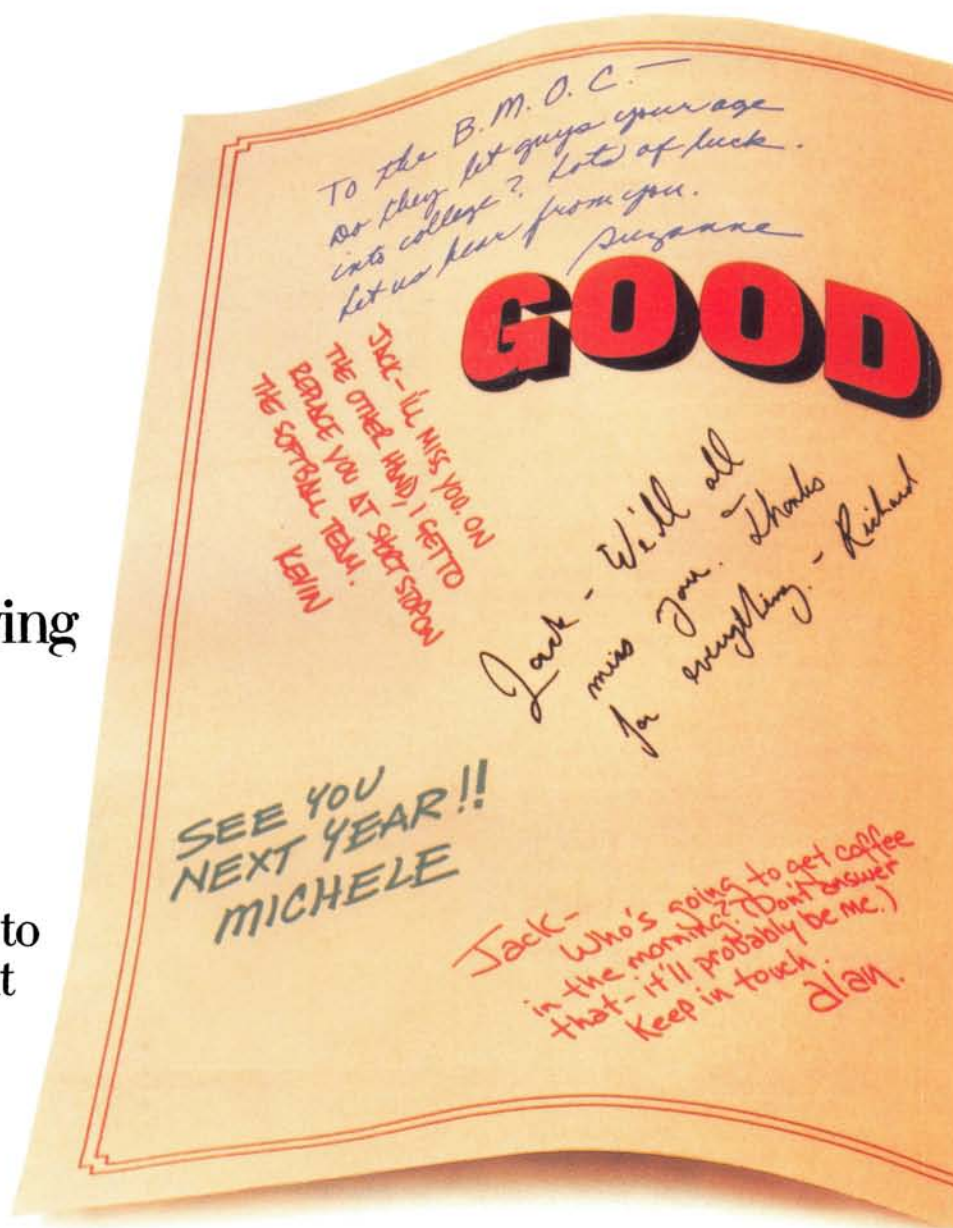 To the B.M.O.C. —
Do they let guys your age
into college? Lots of luck.
Let us hear from you.
Suzanne
GOOD
JACK - I'LL MISS YOU. ON
THE OTHER HAND, I GET TO
REPLACE YOU AT SHORT STOP ON
THE SOFTBALL TEAM.
KEVIN
Jack - We'll all
miss you. Thanks
for everything. - Richard
ing
SEE YOU
NEXT YEAR!!
MICHELE
to
t
Jack-
Who's going to get coffee
in the morning? (Don't answer
that - it'll probably be me.)
Keep in touch.
alan.